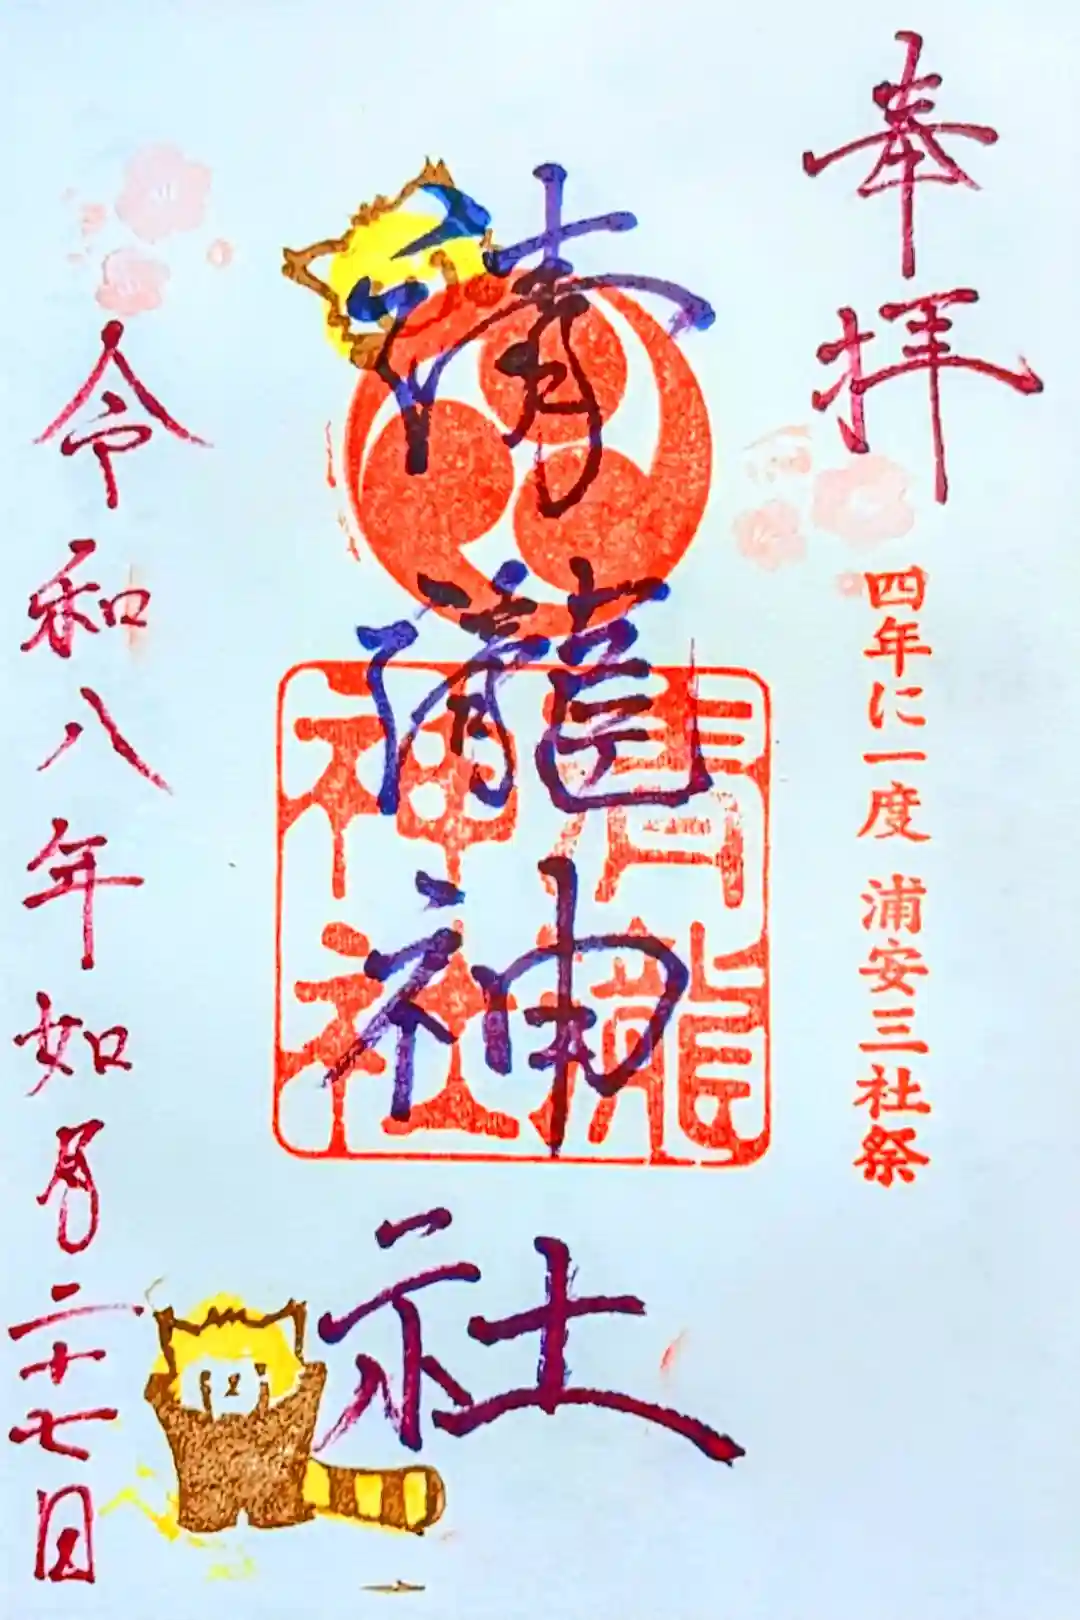 奉拝
四年に一度 浦安三社祭
清瀧神社
清瀧神社
令和八年如月二十七日